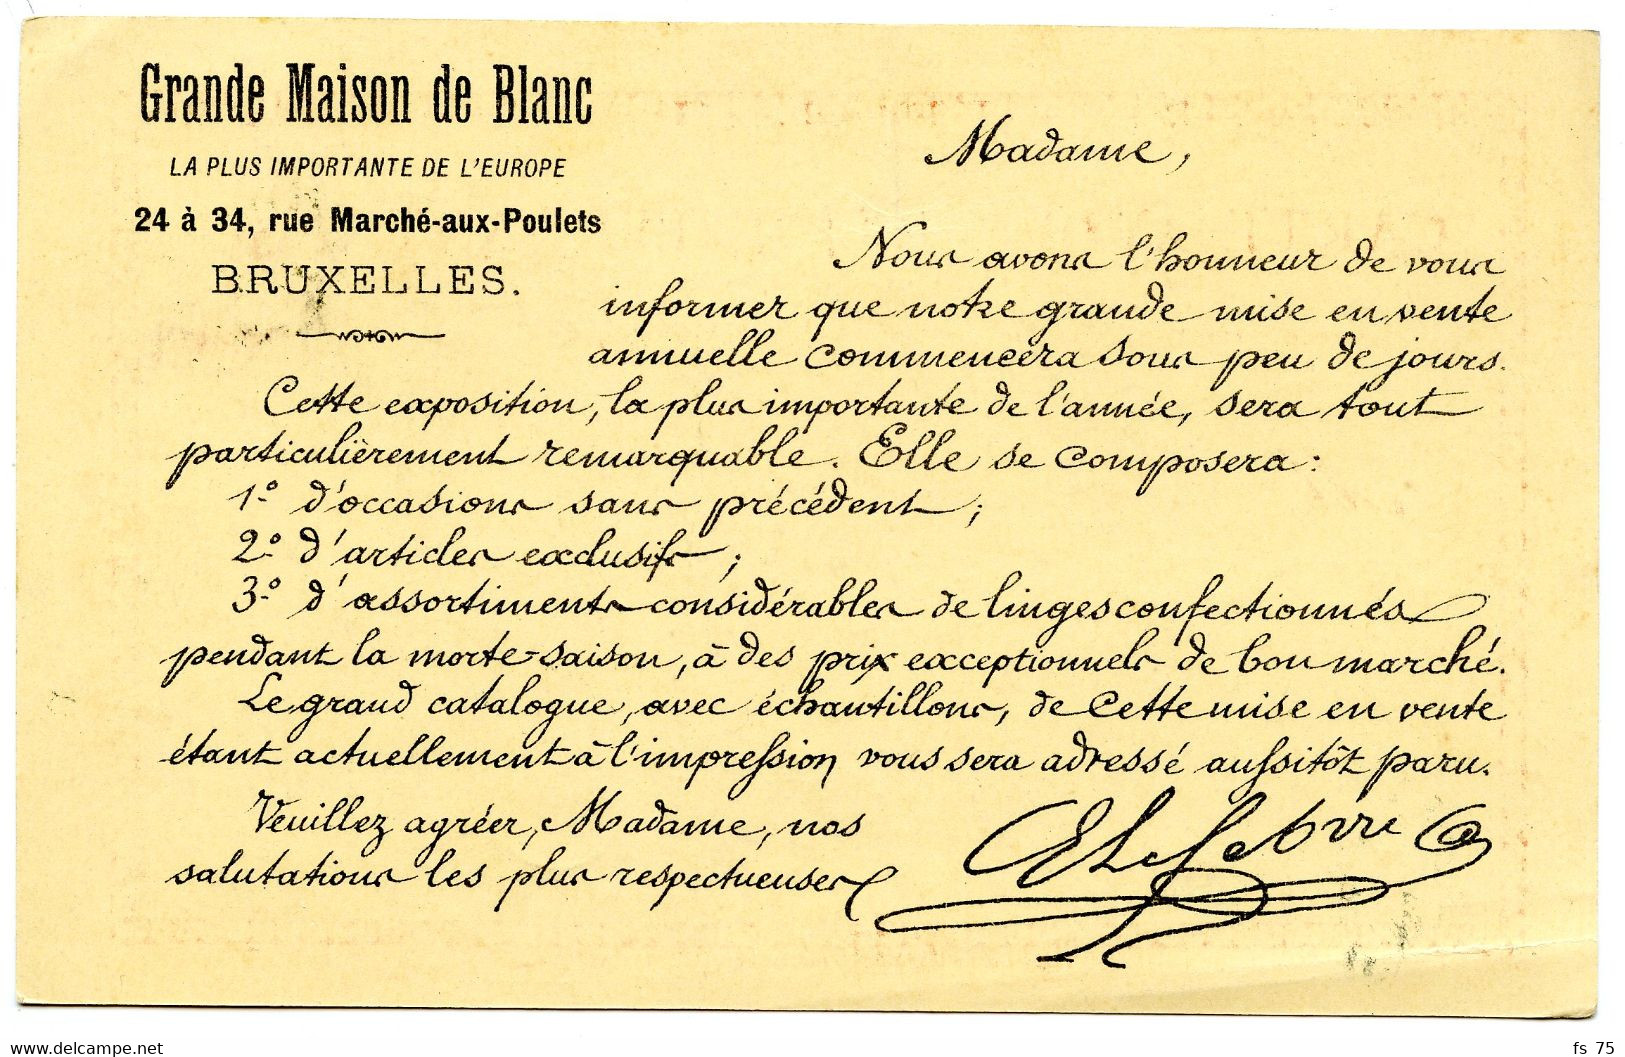 Grande Maison de Blanc
LA PLUS IMPORTANTE DE L'EUROPE
24 à 34, rue Marché-aux-Poulets
BRUXELLES.
Madame,
Nous avons l'honneur de vous
informer que notre grande mise en vente
annuelle commencera sous peu de jours.
Cette exposition, la plus importante de l'année, sera tout
particulièrement remarquable. Elle se composera:
1º d'occasions sans précédent;
2º d'articles exclusifs;
3º d'assortiments considérables de linges confectionnés
pendant la morte-saison, à des prix exceptionnels de bon marché.
Le grand catalogue, avec échantillons, de cette mise en vente
étant actuellement à l'impression vous sera adressé aussitôt paru.
Veuillez agréer, Madame, nos
salutations les plus respectueuses
www.delcampe.net
fs 75